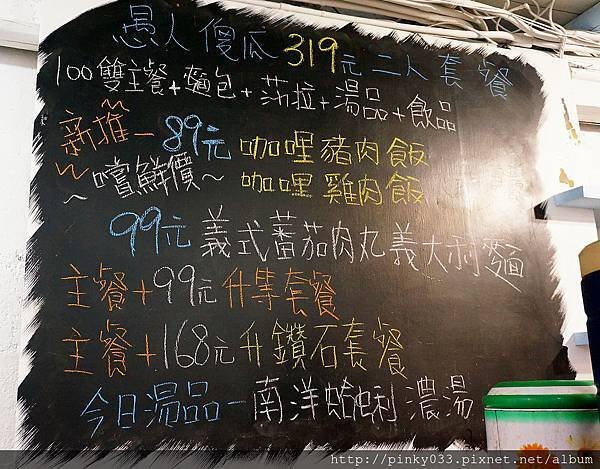 愚人傻瓜319元二人套餐
100雙主餐+麵包+莎拉+湯品+飲品
新推-89元 咖哩豬肉飯
~嚐鮮價~ 咖哩雞肉飯
99元 義式蕃茄肉丸義大利麵
主餐+99元升專套餐
主餐+168元升鑽石套餐
今日湯品-南洋蛤蜊濃湯
http://pinky033.pixnet.net/album